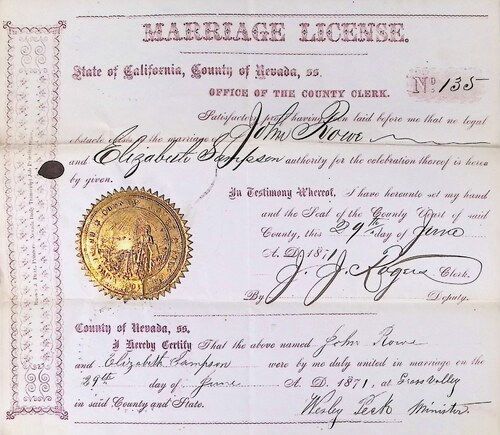 MARRIAGE LICENSE.
State of California, County of Nevada, ss.
OFFICE OF THE COUNTY CLERK.
No 135
Satisfactory proof having been laid before me that no legal
obstacle exists to the marriage of John Rowe
and Elizabeth Sampson authority for the celebration thereof is hereby
by given.
In Testimony Whereof, I have hereunto set my hand
and the Seal of the County Court of said
County, this 29th day of June
A. D. 1871
J. J. Rogers Clerk.
By Deputy.
County of Nevada, ss.
I Hereby Certify That the above named John Rowe
and Elizabeth Sampson were by me duly united in marriage on the
29th day of June A. D. 1871, at Grass Valley
in said County and State.
Wesley Peck Minister.